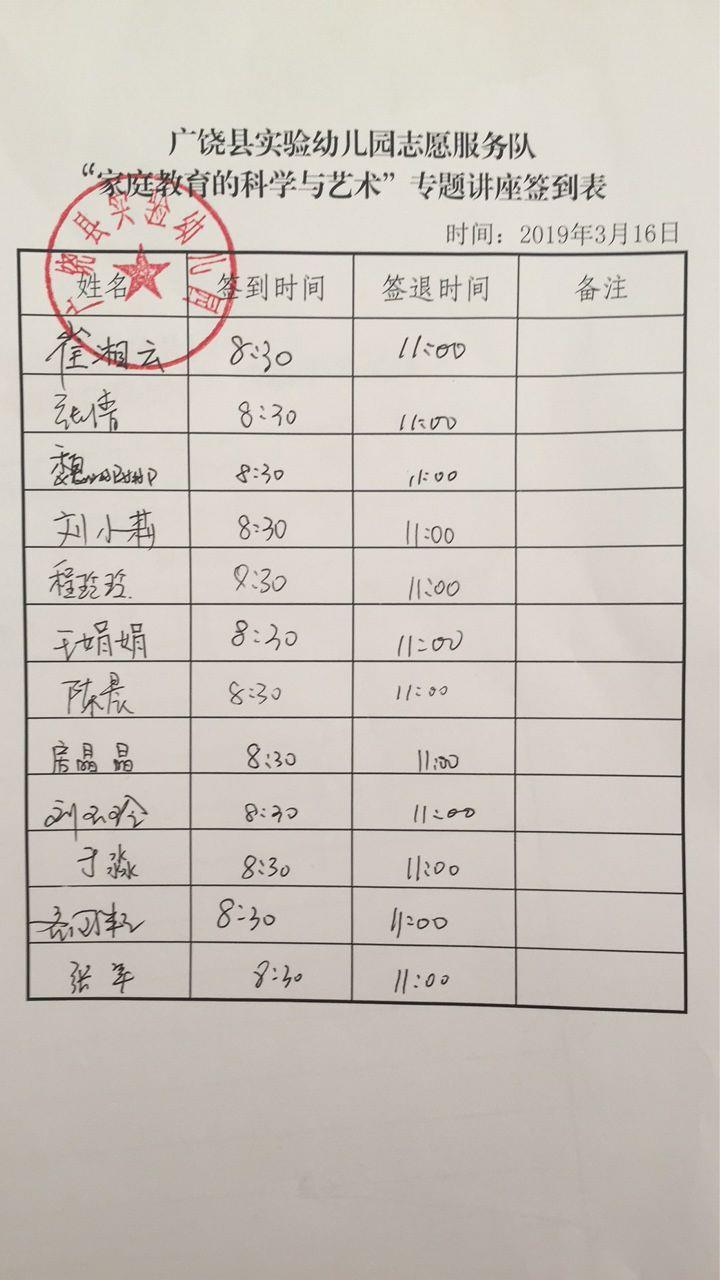 广饶县实验幼儿园志愿服务队
“家庭教育的科学与艺术”专题讲座签到表
时间：2019年3月16日
广饶县实验幼儿园
姓名 签到时间 签退时间 备注
崔湘云 8:30 11:00
张倩 8:30 11:00
魏 8:30 11:00
刘小莉 8:30 11:00
程玲玲 8:30 11:00
王娟娟 8:30 11:00
陈晨 8:30 11:00
房晶晶 8:30 11:00
刘 8:30 11:00
于淼 8:30 11:00
8:30 11:00
张军 8:30 11:00